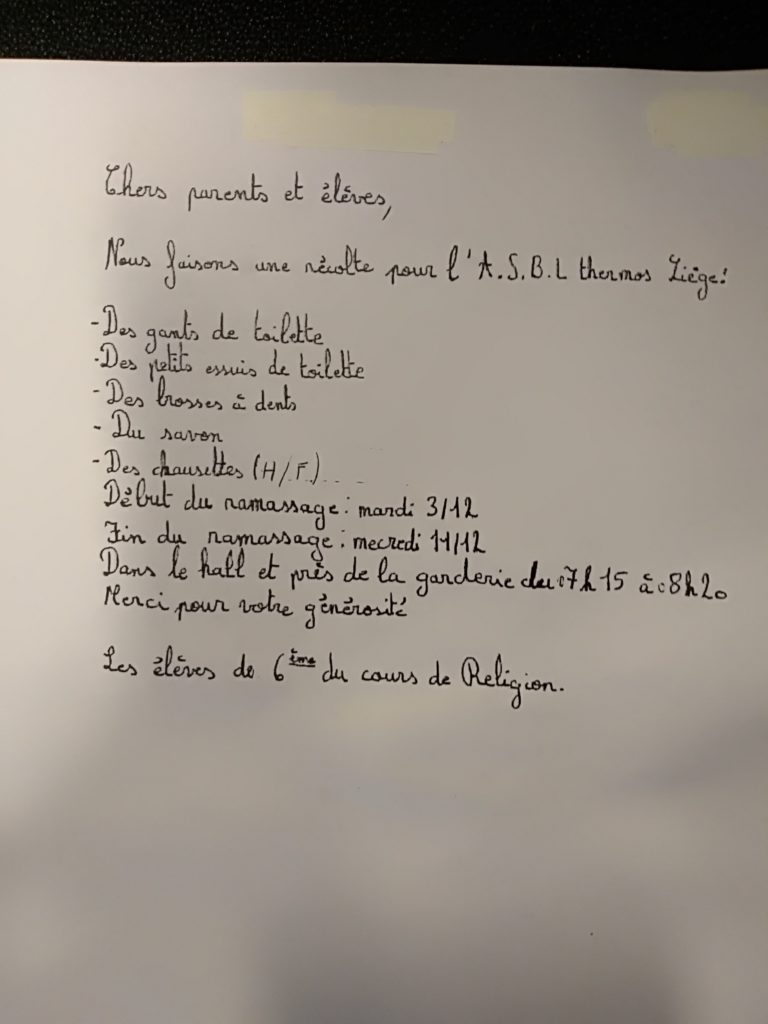 Chers parents et élèves,
Nous faisons une récolte pour l'A.S.B.L thermos Liège:
-Des gants de toilette
-Des petits essuis de toilette
-Des brosses à dents
-Du savon
-Des chausettes (H/F)....
Début du ramassage: mardi 3/12
Fin du ramassage: mecredi 11/12
Dans le hall et près de la garderie du 07h15 à 08h20
Merci pour votre générosité
Les élèves de 6ème du cours de Religion.